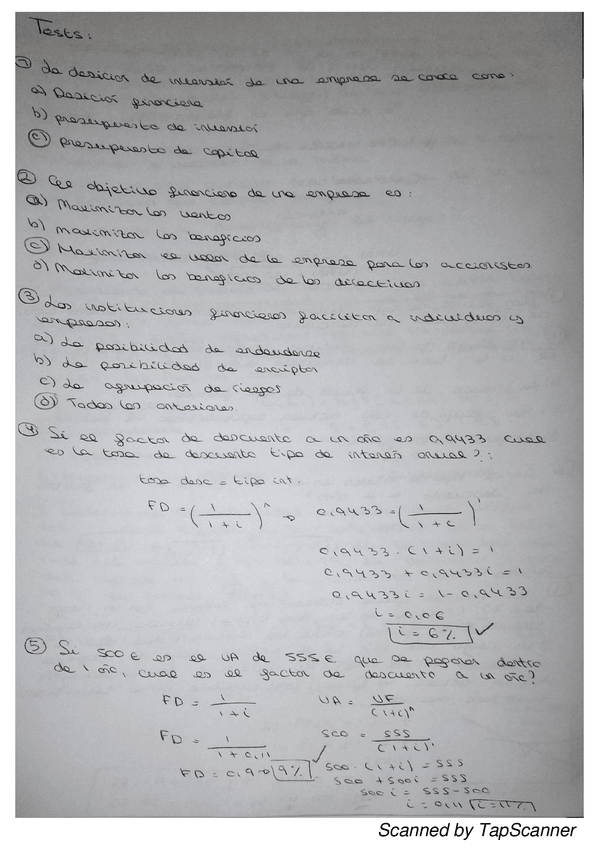 Tests:
① La desición de inversión de una empresa se conoce como:
a) Desición financiera
b) presupuesto de inversión
c) presupuesto de capital
② El objetivo financiero de una empresa es:
a) Maximizar las ventas
b) maximizar los beneficios
c) Maximizar el valor de la empresa para los accionistas
d) Maximizar los beneficios de los directivos
③ Las instituciones financieras facilitan a individuos y
empresas:
a) La posibilidad de endeudarse
b) La posibilidad de
c) La agrupación de riesgos
d) Todas las anteriores.
④ Si el factor de descuento a un año es 0,9433 cual
es la tasa de descuento tipo de interés anual?:
tasa desc = tipo int.
FD = (1 / 1 + i)^n → 0,9433 = (1 / 1 + i)^1
0,9433 · (1 + i) = 1
0,9433 + 0,9433i = 1
0,9433i = 1 - 0,9433
i = 0,06
i = 6% ✓
⑤ Si 500 € es el VA de 555 € que se pagaran dentro
de 1 año, cual es el factor de descuento a un año?
FD = 1 / 1 + i VA = VF / (1+i)^n
FD = 1 / 1 + 0,11 500 = 555 / (1+i)^1
FD = 0,9 → 9% ✓ 500 · (1 + i) = 555
500 + 500i = 555
500 i = 555 - 500
i = 0,11 i = 11%
Scanned by TapScanner